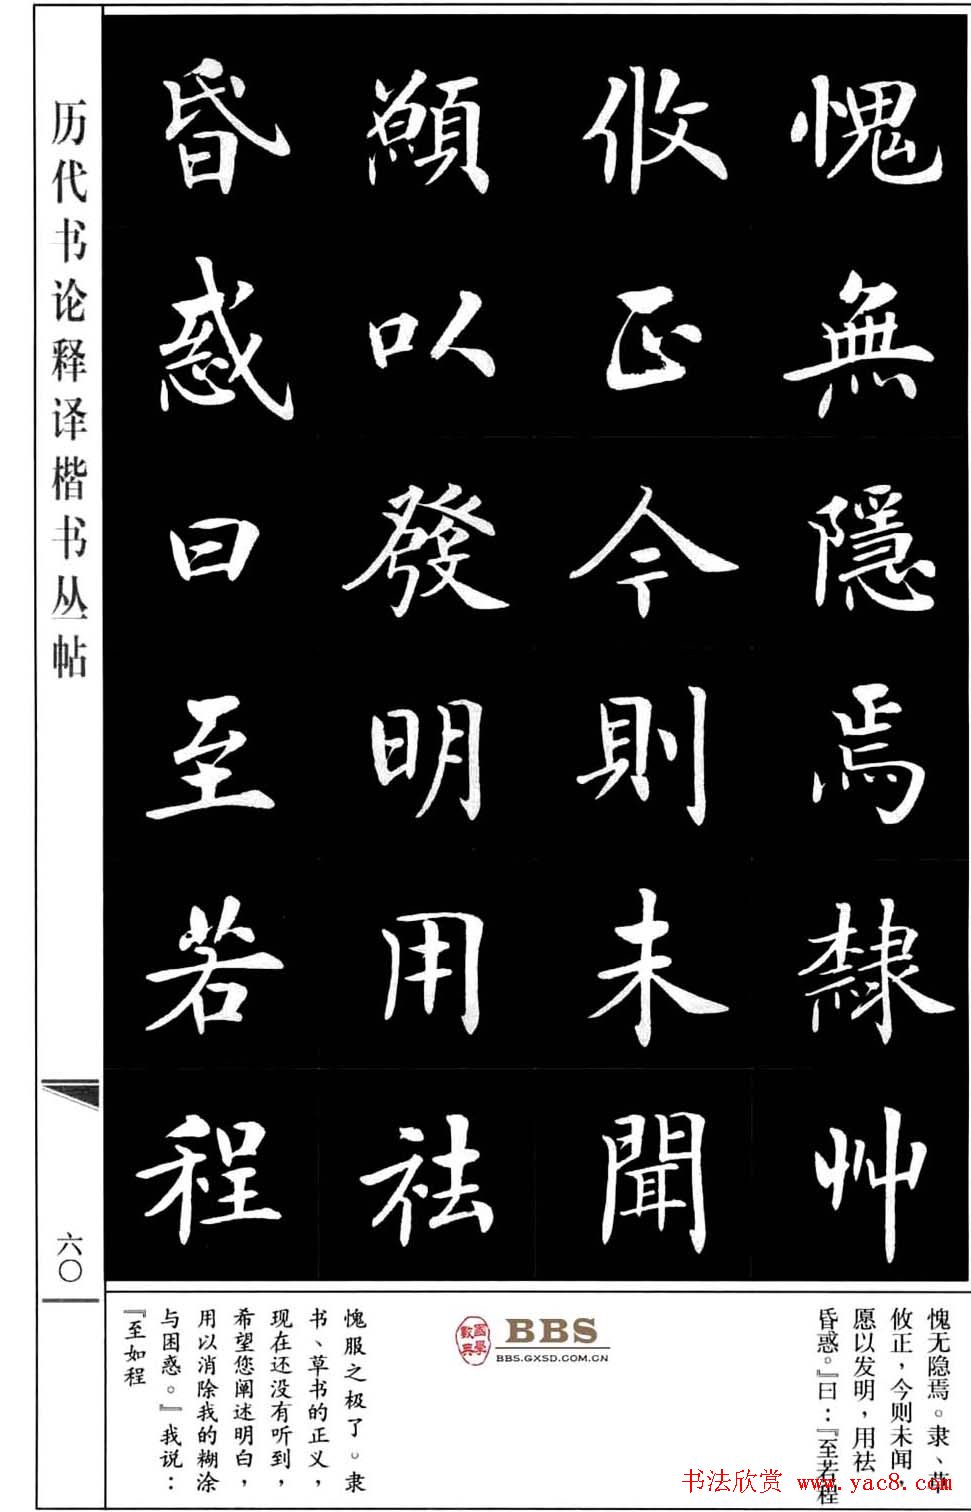 愧無隱焉隸艸
攸正今則未聞
願以發明用祛
昏惑曰至若程
历代书论释译楷书丛帖
六〇
愧无隐焉。隶、草
攸正，今则未闻，
愿以发明，用祛
昏惑。』曰：『至若程
BBS
BBS.GXSD.COM.CN
愧服之极了。隶
书、草书的正义，
现在还没有听到，
希望您阐述明白，
用以消除我的糊涂
与困惑。』我说：
『至如程
书法欣赏 www.yac8.com